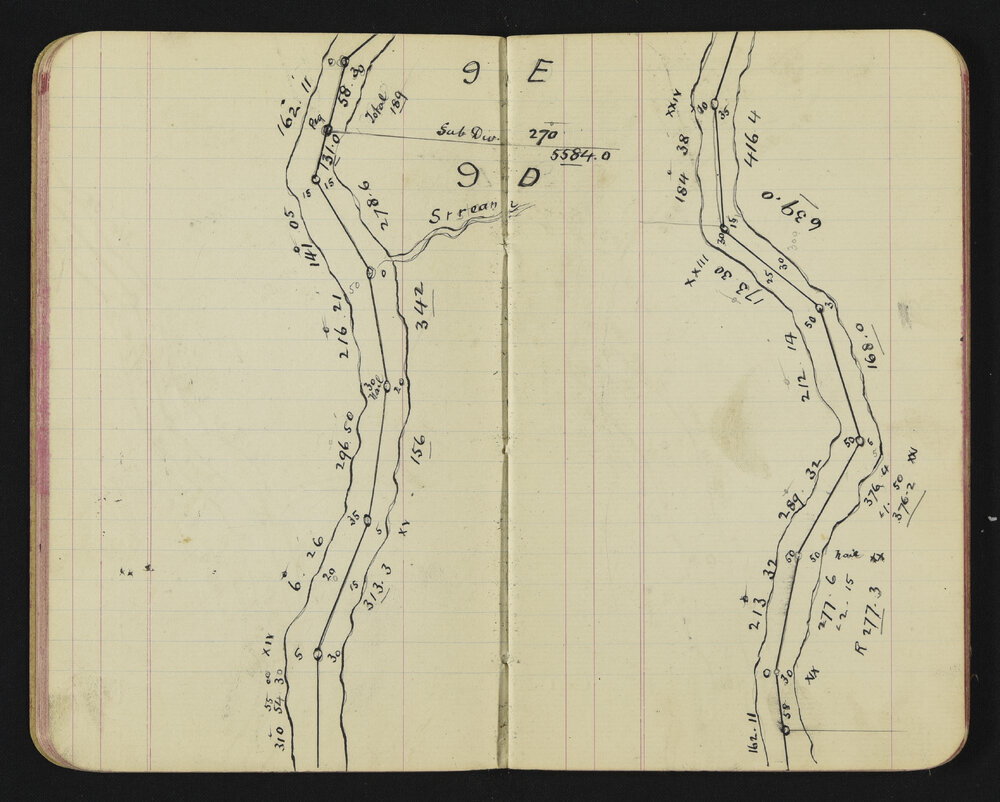 0
162° 11
58.3
Total 189
Peg
131.0
15
15
278.6
05
141
Stream
0
50
216° 21
342
30
nail
20
296 50
156
35
5
XV
6° 26
20
15
313.3
XIV
5
30
55 00
54 30
310
9 E
Sub Div. 270
5584.0
9 D
XXIV
30
35
38
184
416 4
639.0
15
30
300
XXIII
173 30
25
30
50
3
212° 14
168.0
50
5
289° 32
XXI
376 4
50
376.2
50
50
nail
213° 32
277.6
2.15
R 277.3
30
XX
58
162.11